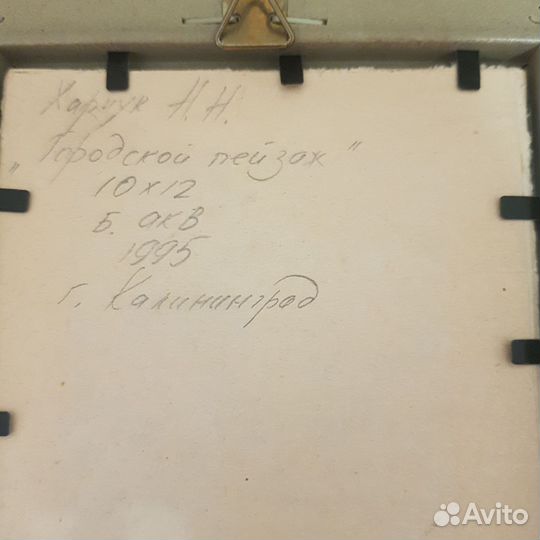 Харчук Н. Н.
"Городской пейзаж"
10х12
Б. акв
1995
г. Калининград
Avito